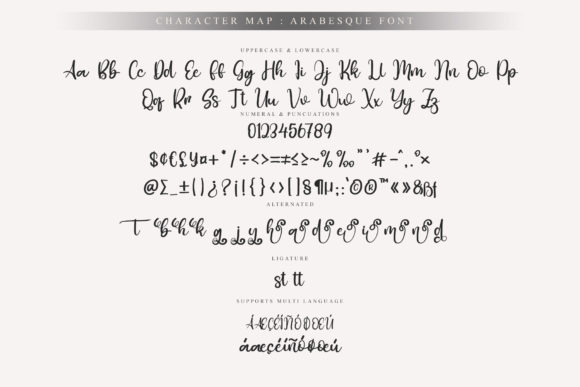 CHARACTER MAP : ARABESQUE FONT
UPPERCASE & LOWERCASE
Aa Bb Cc Dd Ee Ff Gg Hh Ii Jj Kk Ll Mm Nn Oo Pp
Qq Rr Ss Tt Uu Vv Ww Xx Yy Zz
NUMERAL & PUNCUATIONS
0123456789
$¢€£¥¤+*/÷<>=≠≤≥~%‰"'#-^,.°×
@Σ_±()¿?¡!{}‹›[]§¶µ;:'©®™«»&ßƒ
ALTERNATED
T b h k g j y h a d e i m n d
LIGATURE
st tt
SUPPORTS MULTI LANGUAGE
ÁÆÇÉÍÑÓØŒÚ
áaeçéíñóøœú